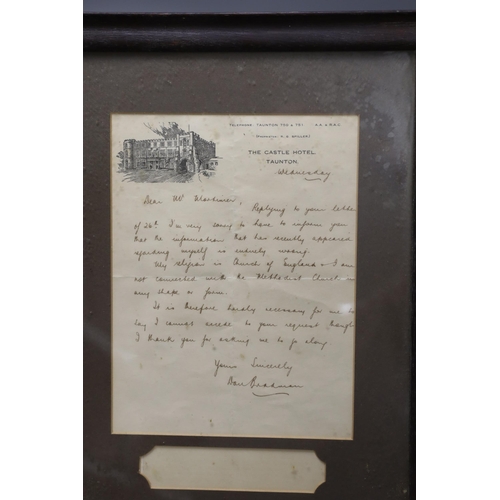 TELEPHONE: TAUNTON 750 & 751 A.A. & R.A.C.
THE CASTLE HOTEL
TAUNTON.
Wednesday
Dear Mr Mortimer,
Replying to your letter
of 26th I'm very sorry to have to inform you
that the information that has recently appeared
regarding myself is entirely wrong.
My religion is Church of England & I am
not connected with the Methodist Church in
any shape or form.
It is therefore hardly necessary for me to
say I cannot accede to your request though
I thank you for asking me to go along
Yours Sincerely
Don Bradman